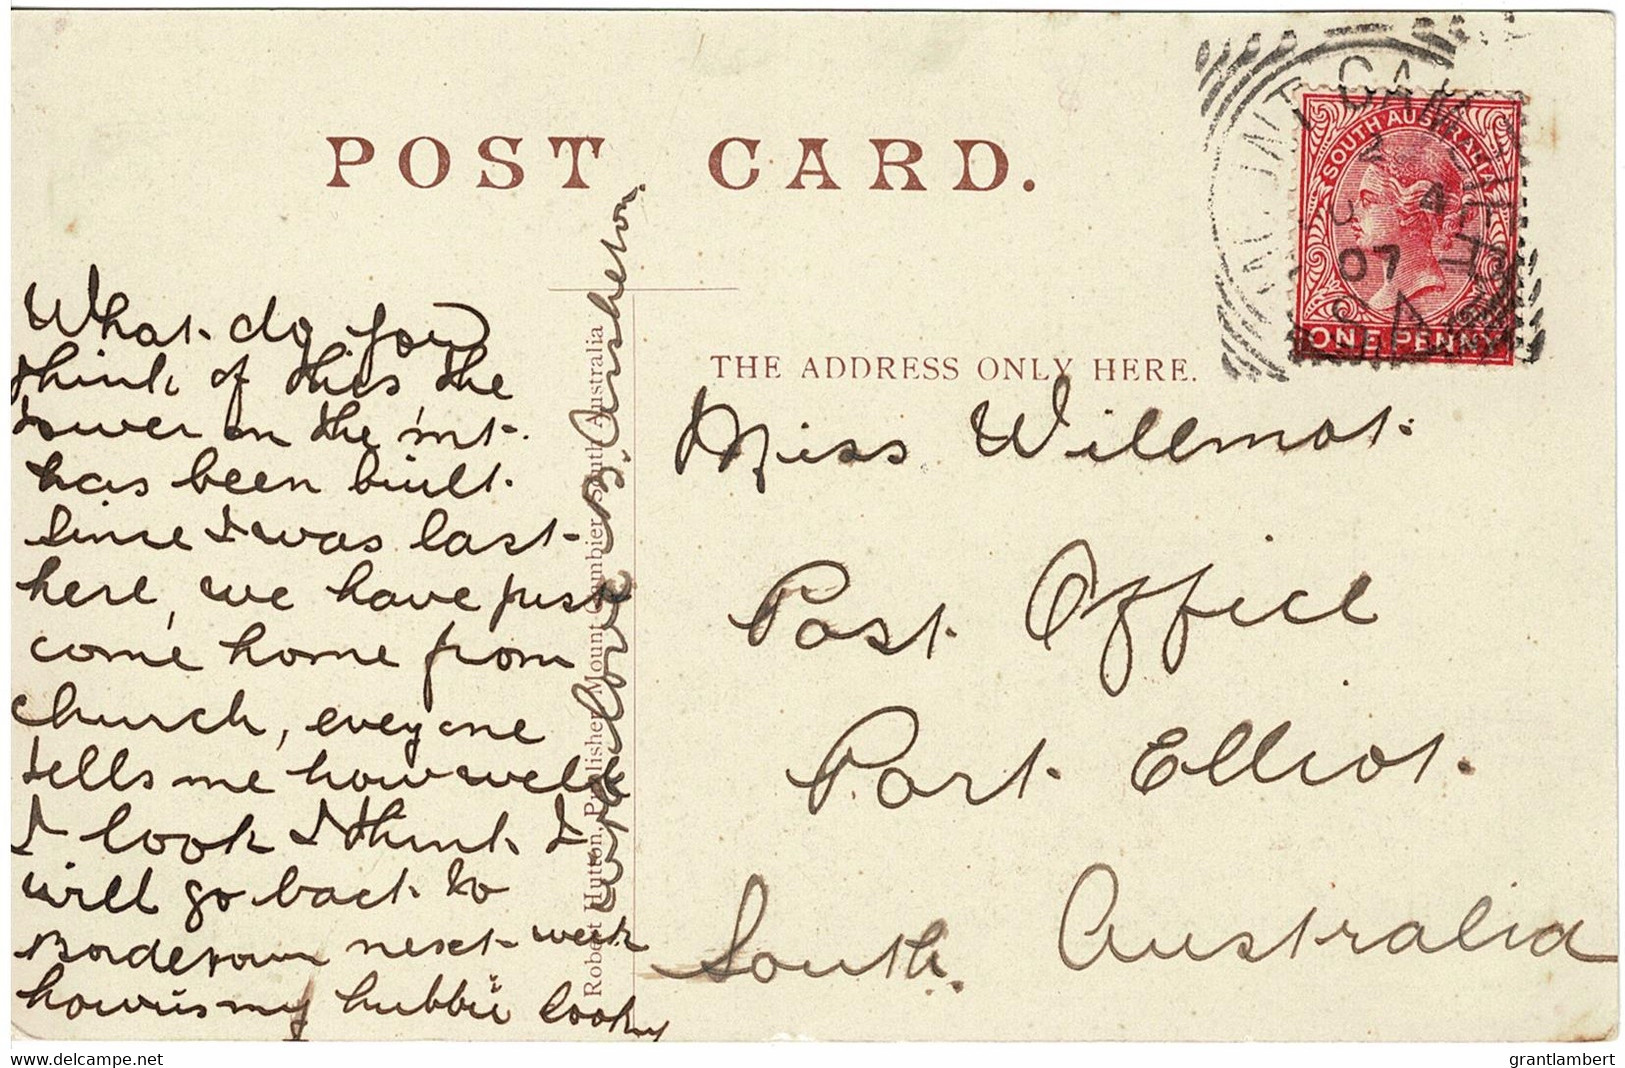 POST CARD.
SOUTH AUSTRALIA
ONE PENNY
MOUNT GAMBIER
07
THE ADDRESS ONLY HERE.
Miss Willmot.
Post Office
Port Elliot.
South. Australia
What do you
think of this the
tower on the mt.
has been built.
Since I was last
here, we have just
come home from
church, eveyone
tells me how well
I look I think I
will go back to
Bordertown next week
how is my hubbie looking
with love
B. Asheton.
Robert Hutton, Publisher, Mount Gambier, South Australia
delcampe.net
grantlambert